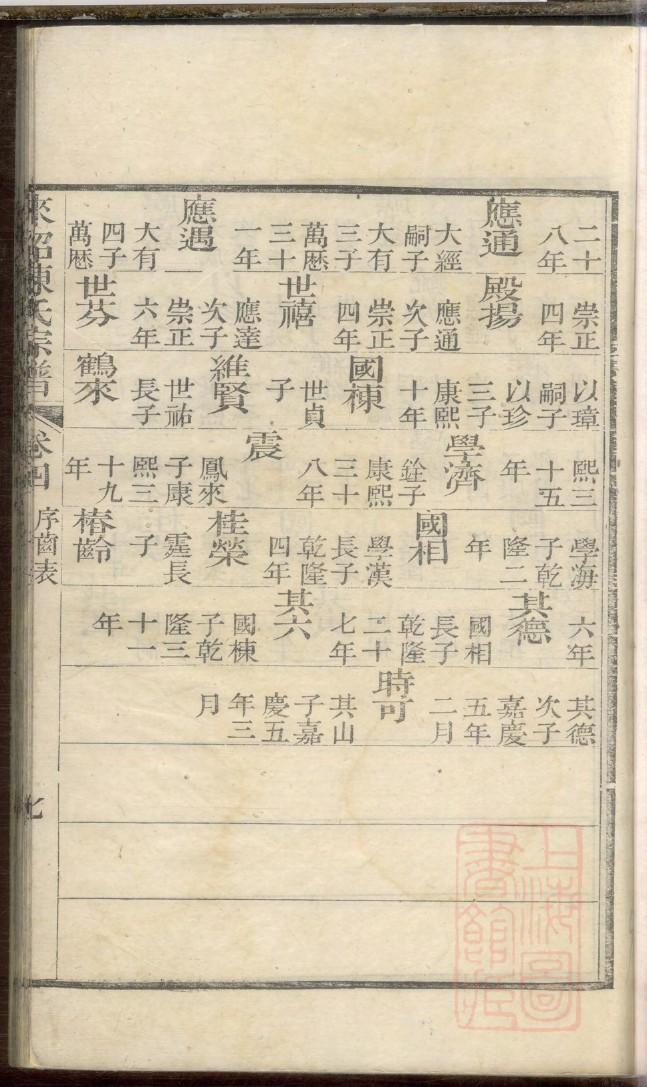 二十
八年
應通
大經
嗣子
大有
三子
萬厯
三十
一年
應遇
大有
四子
萬厯
崇正
四年
殿揚
應通
次子
崇正
四年
世禧
應達
次子
崇正
六年
世芬
以璋
嗣子
以珍
三子
康熙
十年
國棟
世貞
子
維賢
世祐
長子
鶴來
熙三
十五
年
學濟
銓子
康熙
三十
八年
震
鳳來
子康
熙三
十九
年
學海
子乾
隆二
年
國相
學漢
長子
乾隆
四年
桂榮
霆長
子
椿齡
六年
其德
國相
長子
乾隆
二十
七年
其六
國棟
子乾
隆三
十一
年
其德
次子
嘉慶
五年
二月
時可
其山
子嘉
慶五
年三
月
陳氏宗譜
序齒表
七
上海圖
書館藏